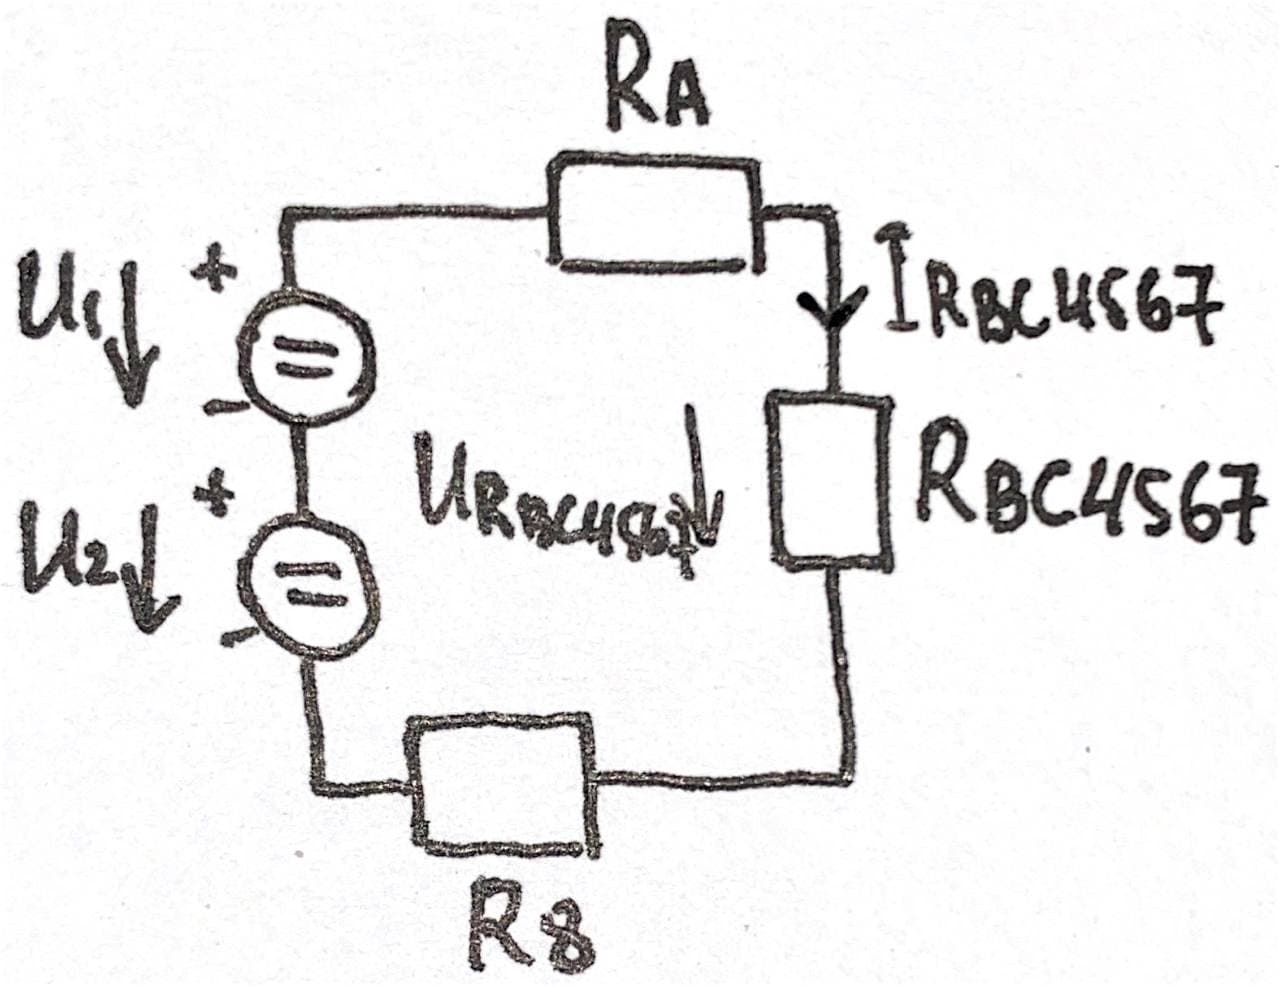 RA
U1
+
-
IRBC4567
URBC4567
RBC4567
U2
+
-
R8